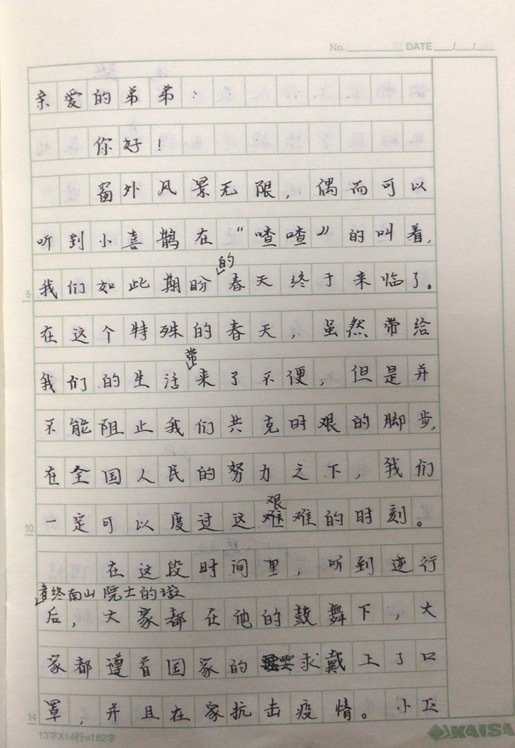 No. DATE / /
亲爱的弟弟：
你好！
窗外风景无限，偶而可以
听到小喜鹊在“喳喳”的叫着，
我们如此期盼的春天终于来临了。
在这个特殊的春天，虽然带给
我们的生活带来了不便，但是并
不能阻止我们共克时艰的脚步，
在全国人民的努力之下，我们
一定可以度过这艰难的时刻。
在这段时间里，听到逆行
者终南山院士的
后，大家都在他的鼓舞下，大
家都遵着国家的要求戴上了口
罩，并且在家抗击疫情。小区
5
10
14
13字X14行=182字
KAISA